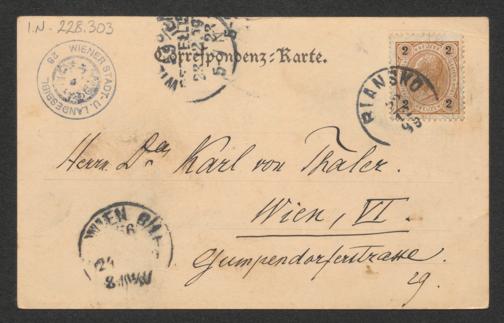 I.N. 228.303
WIENER STADT-U. LANDESBIBL.
Correspondenz-Karte.
2 2
2 2
BLANSKO
Herrn Dr. Karl von Thaler.
Wien, VI.
Gumpendorferstrasse
29.
WIEN
24
8